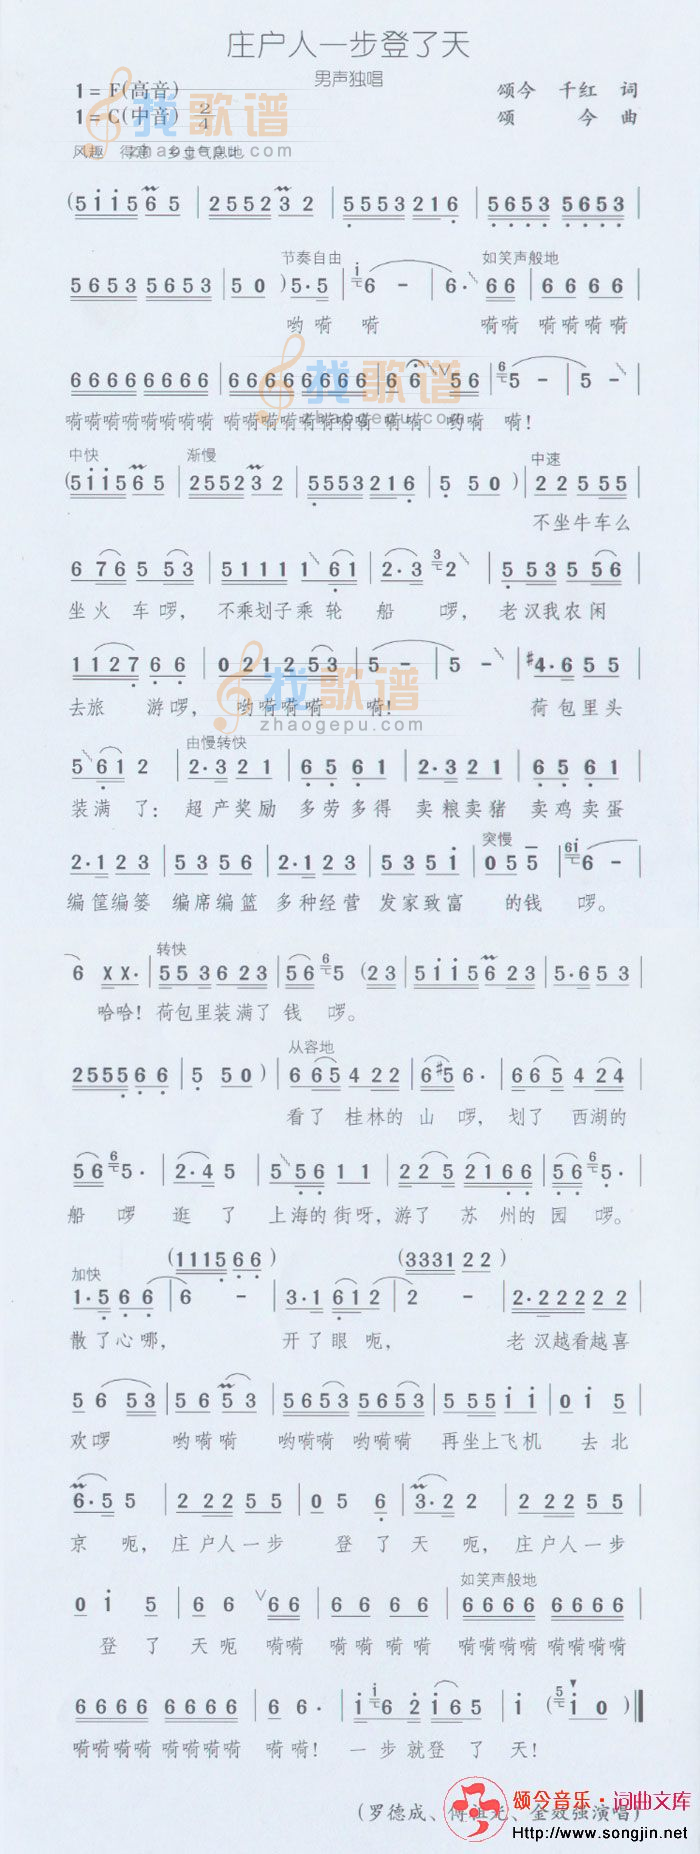 庄户人一步登了天
男声独唱
1=F(高音)
1=C(中音) 2/4
颂今 千红 词
颂 今 曲
找歌谱
zhaogepu.com
风趣 得意 乡土气息地
(5 i i 5 6 5 | 2 5 5 2 3 2 | 5 5 5 3 2 2 1 6 | 5 6 5 3 5 6 5 3 |
节奏自由 如笑声般地
5 6 5 3 5 6 5 3 | 5 0 ) 5·5 | 6 - | 6· 6 6 | 6 6 6 6 |
哟嗬 嗬 嗬嗬 嗬嗬嗬嗬
找歌谱
zhaogepu.com
6 6 6 6 6 6 6 6 | 6 6 6 6 6 6 6 6 | 6 6 ∨ 5 6 | 5 - | 5 - |
嗬嗬嗬嗬嗬嗬嗬嗬 嗬嗬嗬嗬嗬嗬嗬嗬 嗬嗬 哟嗬 嗬!
中快 渐慢 中速
(5 i i 5 6 5 | 2 5 5 2 3 2 | 5 5 5 3 2 1 6 | 5 5 0 ) | 2 2 5 5 5 |
不坐牛车么
6 7 6 5 5 3 | 5 1 1 1 1 6 1 | 2·3 2 | 5 5 3 5 5 6 |
坐火 车啰, 不乘划子乘轮 船 啰, 老汉我农闲
1 1 2 7 6 6 | 0 2 1 2 5 3 | 5 - | 5 - | #4·6 5 5 |
去旅 游啰, 哟嗬嗬嗬 嗬! 荷包里头
找歌谱
zhaogepu.com
由慢转快
5 6 1 2 | 2·3 2 1 | 6 5 6 1 | 2·3 2 1 | 6 5 6 1 |
装满 了: 超产奖励 多劳多得 卖粮卖猪 卖鸡卖蛋
突慢
2·1 2 3 | 5 3 5 6 | 2·1 2 3 | 5 3 5 i | 0 5 5 | 6 - |
编筐编篓 编席编篮 多种经营 发家致富 的钱 啰。
转快
6 X X· | 5 5 3 6 2 3 | 5 6 5 (2 3 | 5 i i 5 6 2 3 | 5·6 5 3 |
哈哈! 荷包里装满了钱 啰。
从容地
2 5 5 5 6 6 | 5 5 0 ) | 6 6 5 4 2 2 | 6 #5 6· | 6 6 5 4 2 4 |
看了 桂林的 山 啰, 划了 西湖的
5 6 5· | 2·4 5 | 5 5 6 1 1 | 2 2 5 2 1 6 6 | 5 6 5· |
船 啰 逛 了 上海的街呀, 游了 苏州的园 啰。
(1 1 1 5 6 6 ) (3 3 3 1 2 2 )
加快
1·5 6 6 | 6 - | 3·1 6 1 2 | 2 - | 2·2 2 2 2 2 |
散了心哪, 开了眼 呃, 老汉越看越喜
5 6 5 3 | 5 6 5 3 | 5 6 5 3 5 6 5 3 | 5 5 5 i i | 0 i 5 |
欢啰 哟嗬嗬 哟嗬嗬 哟嗬嗬 再坐上飞机 去北
6·5 5 | 2 2 2 5 5 | 0 5 6 | 3·2 2 | 2 2 2 5 5 |
京 呃, 庄户人一步 登了天 呃, 庄户人一步
如笑声般地
0 i 5 | 6 6 ∨ 6 6 | 6 6 6 6 | 6 6 6 6 6 6 6 6 |
登了 天呃 嗬嗬 嗬嗬嗬嗬 嗬嗬嗬嗬嗬嗬嗬嗬
6 6 6 6 6 6 6 6 | 6 6· | i 6 2 i 6 5 | i ( i 0 ) ‖
嗬嗬嗬嗬 嗬嗬嗬嗬 嗬嗬! 一步就登 了 天!
(罗德成、傅祖光、金效强演唱)
颂今音乐·词曲文库
Http://www.songjin.net